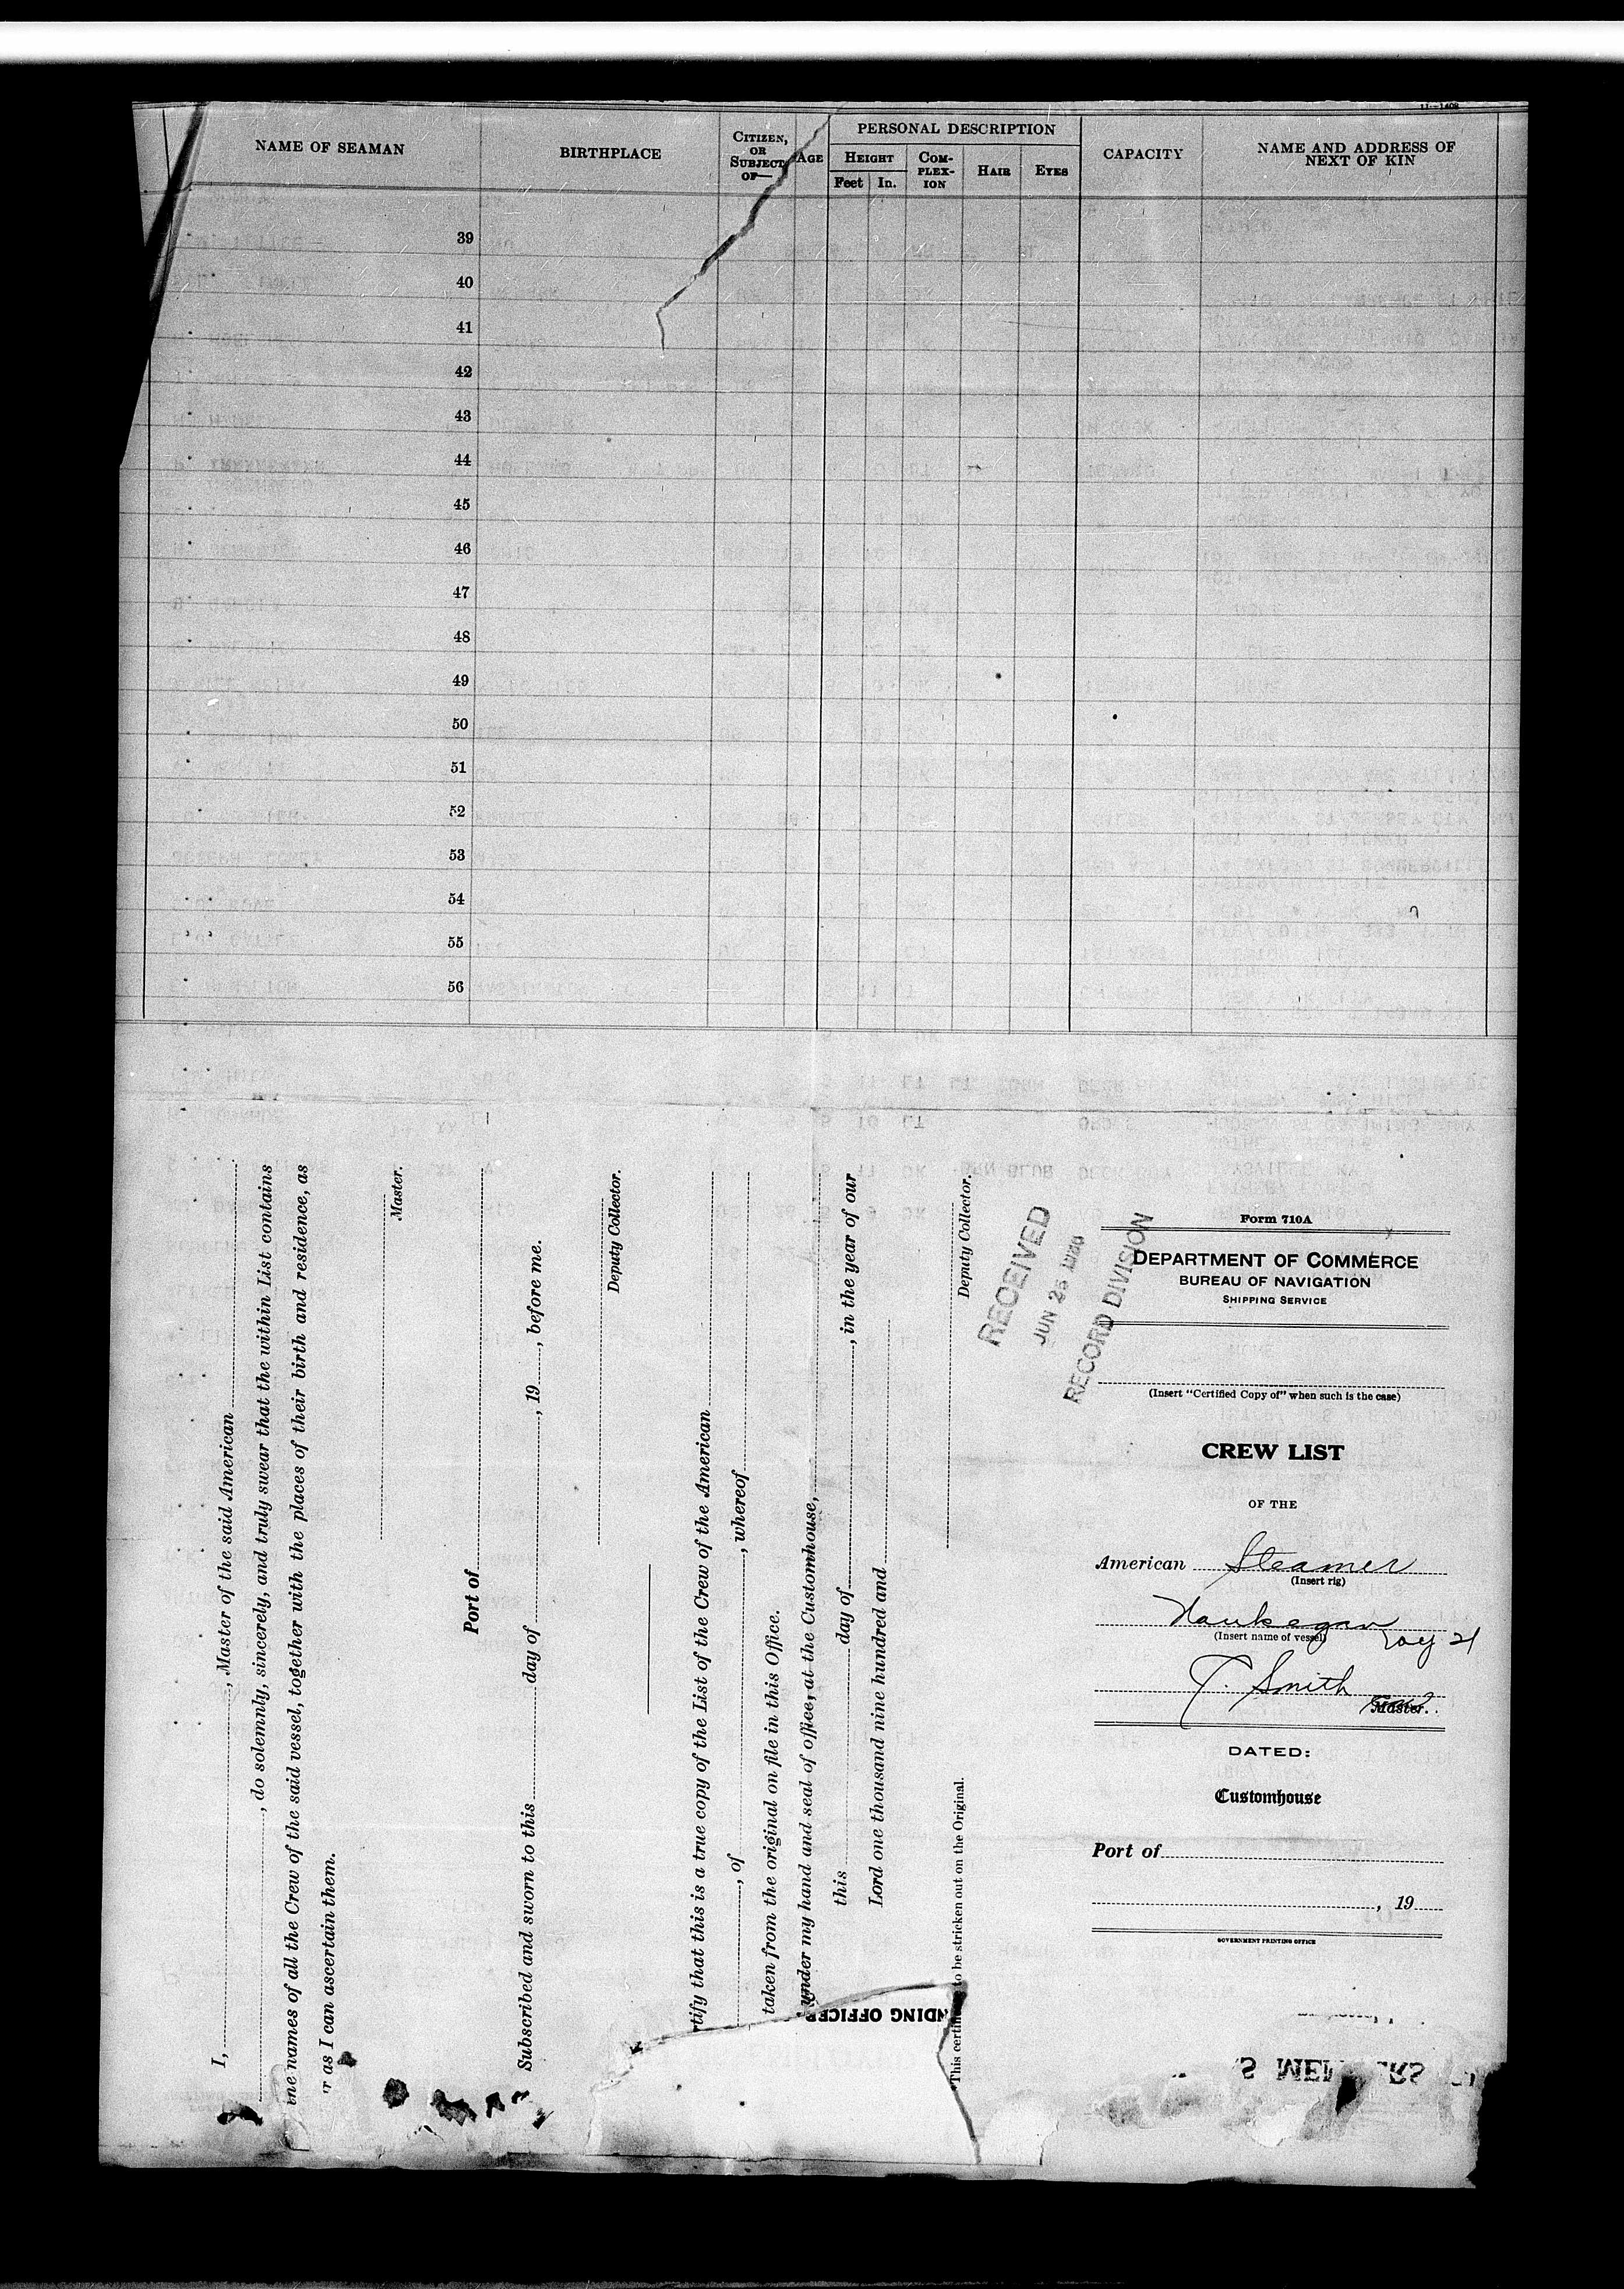 11—1408
NAME OF SEAMAN
BIRTHPLACE
CITIZEN, OR SUBJECT OF—
AGE
PERSONAL DESCRIPTION
HEIGHT
Feet In.
COM-PLEX-ION
HAIR
EYES
CAPACITY
NAME AND ADDRESS OF NEXT OF KIN
39
40
41
42
43
44
45
46
47
48
49
50
51
52
53
54
55
56
I, , Master of the said American
, do solemnly, sincerely, and truly swear that the within List contains
names of all the Crew of the said vessel, together with the places of their birth and residence, as
as I can ascertain them.
Master.
Port of
Subscribed and sworn to this day of , 19 , before me.
Deputy Collector.
tify that this is a true copy of the List of the Crew of the American
, of , whereof
taken from the original on file in this Office.
under my hand and seal of office, at the Customhouse,
this day of , in the year of our
Lord one thousand nine hundred and
Deputy Collector.
to be stricken out on the Original.
NDING OFFICER
RECEIVED
JUN 25
RECORD DIVISION
Form 710A
DEPARTMENT OF COMMERCE
BUREAU OF NAVIGATION
SHIPPING SERVICE
(Insert "Certified Copy of" when such is the case)
CREW LIST
OF THE
American Steamer
(Insert rig)
Waukegan
(Insert name of vessel)
T. Smith
Master.
DATED:
Customhouse
Port of
, 19
GOVERNMENT PRINTING OFFICE